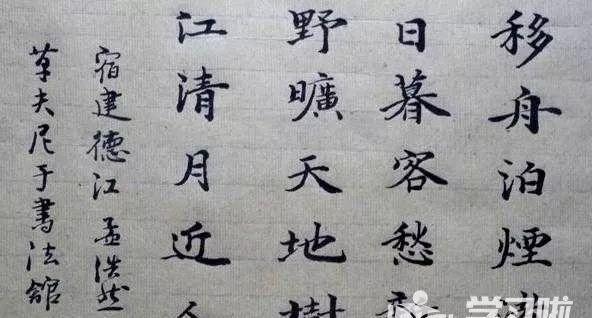 移舟泊煙
日暮客愁
野曠天地樹
江清月近人
宿建德江 孟浩然
草夫尼于書法館
学习啦